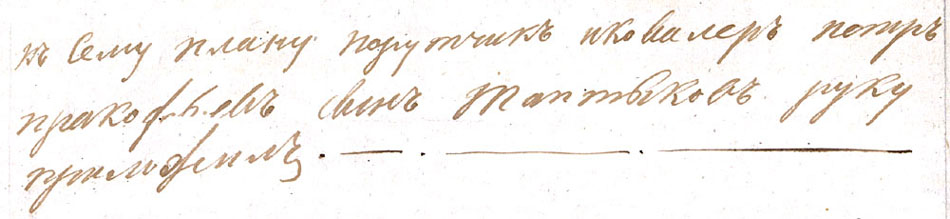 къ сему плану порутчикъ икавалеръ петръ
пракофьевъ сынъ Таптыковъ руку
приложилъ